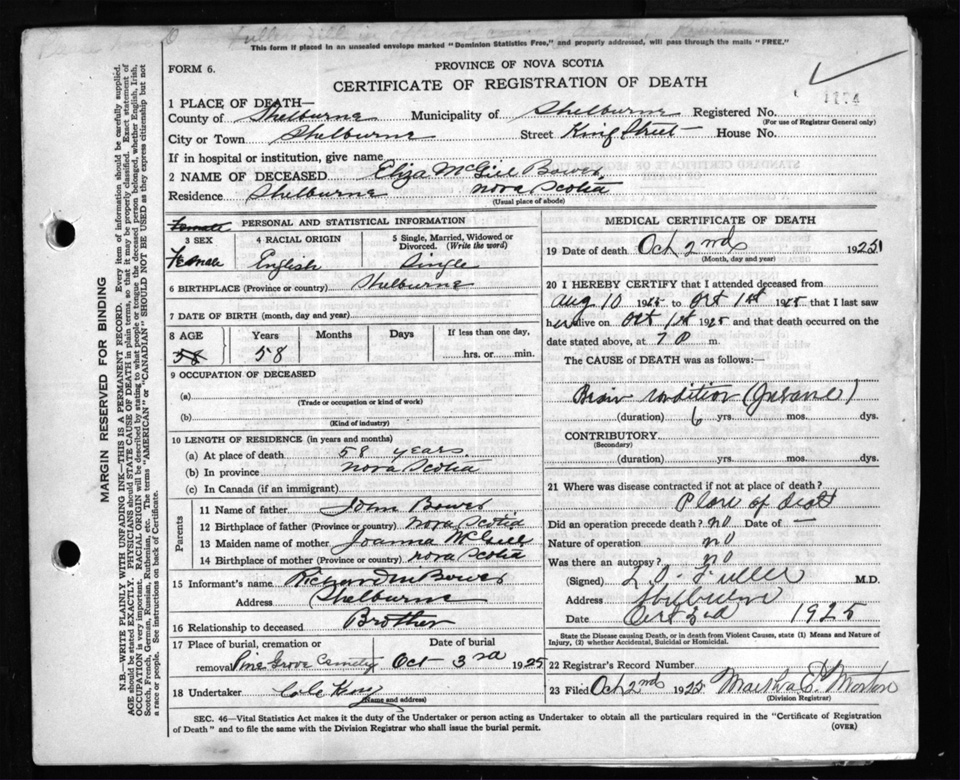 This form if placed in an unsealed envelope marked "Dominion Statistics Free," and properly addressed, will pass through the mails "FREE."
FORM 6.
PROVINCE OF NOVA SCOTIA
CERTIFICATE OF REGISTRATION OF DEATH
1 PLACE OF DEATH—
County of Shelburne Municipality of Shelburne Registered No.
(For use of Registrar General only)
City or Town Shelburne Street King Street House No.
If in hospital or institution, give name
2 NAME OF DECEASED Eliza McGill Bower
Residence Shelburne, Nova Scotia
(Usual place of abode)
PERSONAL AND STATISTICAL INFORMATION
Female
3 SEX 4 RACIAL ORIGIN 5 Single, Married, Widowed or Divorced. (Write the word)
Female English Single
6 BIRTHPLACE (Province or country) Shelburne
7 DATE OF BIRTH (month, day and year)
8 AGE Years Months Days If less than one day,
58 58 hrs. or min.
9 OCCUPATION OF DECEASED
(a)
(Trade or occupation or kind of work)
(b)
(Kind of industry)
10 LENGTH OF RESIDENCE (in years and months)
(a) At place of death 58 years
(b) In province Nova Scotia
(c) In Canada (if an immigrant)
Parents
11 Name of father John Bower
12 Birthplace of father (Province or country) Nova Scotia
13 Maiden name of mother Joanna McGill
14 Birthplace of mother (Province or country) Nova Scotia
15 Informant's name Richard M Bower
Address Shelburne
16 Relationship to deceased Brother
17 Place of burial, cremation or removal Date of burial
Pine Grove Cemetery Oct 3rd 1925
18 Undertaker
(Name and address)
MEDICAL CERTIFICATE OF DEATH
19 Date of death Oct 2nd 1925
(Month, day and year)
20 I HEREBY CERTIFY that I attended deceased from
Aug 10 1925 to Oct 1st 1925 that I last saw
her alive on Oct 1st 1925 and that death occurred on the
date stated above, at 7 m.
The CAUSE of DEATH was as follows:
Brain condition (Insane)
(duration) 6 yrs. mos. dys.
CONTRIBUTORY
(Secondary)
(duration) yrs. mos. dys.
21 Where was disease contracted if not at place of death?
Place of death
Did an operation precede death? no Date of —
Nature of operation no
Was there an autopsy? no
(Signed) L. O. Fuller M.D.
Address Shelburne
Date Oct 2nd 1925
State the Disease causing Death, or in death from Violent Causes, state (1) Means and Nature of Injury, (2) whether Accidental, Suicidal or Homicidal.
22 Registrar's Record Number
23 Filed Oct 2nd 1925 Martha E. Morton
(Division Registrar)
SEC. 46—Vital Statistics Act makes it the duty of the Undertaker or person acting as Undertaker to obtain all the particulars required in the "Certificate of Registration
of Death" and to file the same with the Division Registrar who shall issue the burial permit.
(OVER)
MARGIN RESERVED FOR BINDING
N.B.—WRITE PLAINLY WITH UNFADING INK—THIS IS A PERMANENT RECORD. Every item of information should be carefully supplied.
AGE should be stated EXACTLY. PHYSICIANS should STATE CAUSE OF DEATH in plain terms, so that it may be properly classified. Exact statement of
OCCUPATION is very important. RACIAL ORIGIN will be described by stating to what people or tongue the deceased person belonged, whether English, Irish,
Scotch, French, German, Russian, Ruthenian, etc. The terms "AMERICAN" or "CANADIAN" SHOULD NOT BE USED as they express citizenship but not
a race or people. See instructions on back of Certificate.